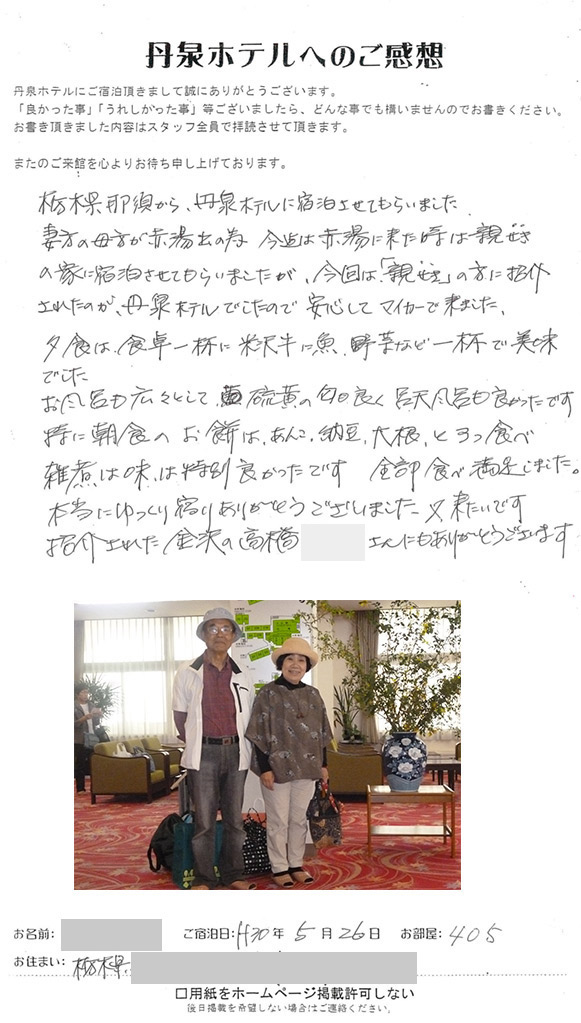 丹泉ホテルへのご感想
丹泉ホテルにご宿泊頂きまして誠にありがとうございます。
「良かった事」「うれしかった事」等ございましたら、どんな事でも構いませんのでお書きください。
お書き頂きました内容はスタッフ全員で拝読させて頂きます。
またのご来館を心よりお待ち申し上げております。
栃木県那須から、丹泉ホテルに宿泊させてもらいました
妻方の母方が赤湯出の為 今迄は赤湯に来た時は親せき
の家に宿泊させてもらいましたが、今回は、「親せき」の方に招介
されたのが、丹泉ホテルでしたので 安心して マイカーで来ました、
夕食は、食卓一杯に 米沢牛に魚、野菜など一杯で美味
でした
お風呂も広々として 硫黄の匂良く 呂天風呂も良かったです
特に朝食の お餅は、あんこ、納豆、大根、と3つ食べ
雑煮は味は特別良かったです 全部食べ満足しました。
本当にゆっくり宿りありがとうございました 又来たいです
招介された金沢の高橋 さんにもありがとうございます
お名前: ご宿泊日:H30年 5月26日 お部屋:405
お住まい:栃木県
☐用紙をホームページ掲載許可しない
後日掲載を希望しない場合はご連絡ください。